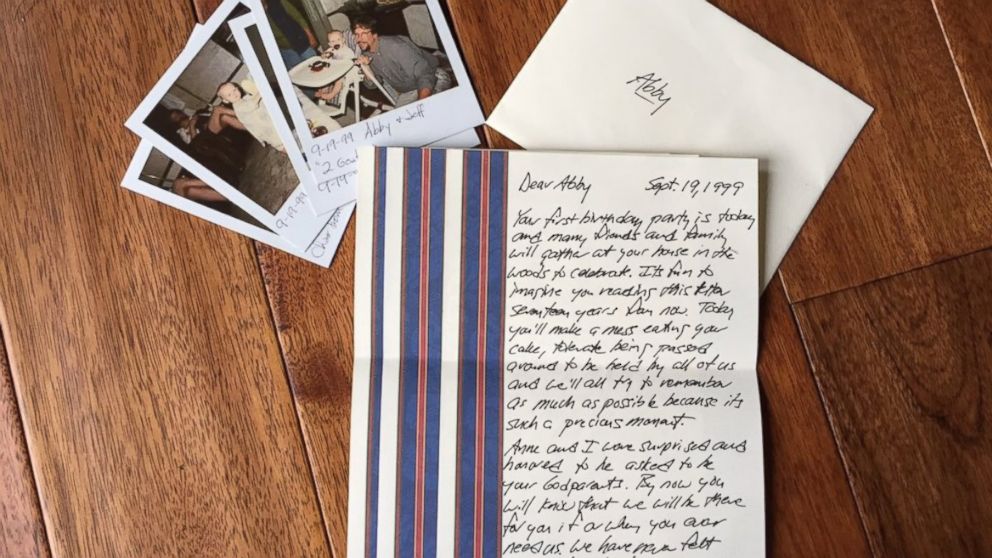 9-19-99 Abby & Jeff
"2 Goats
9-19-99
9-19-99
Abby
Dear Abby Sept. 19, 1999
Your first birthday party is today
and many friends and family
will gather at your house in the
woods to celebrate. It's fun to
imagine you reading this letter
seventeen years from now. Today
you'll make a mess eating your
cake, tolerate being passed
around to be held by all of us
and we'll all try to remember
as much as possible because it's
such a precious moment.
Anne and I were surprised and
honored to be asked to be
your Godparents. By now you
will know that we will be there
for you if or when you ever
need us. We have never felt